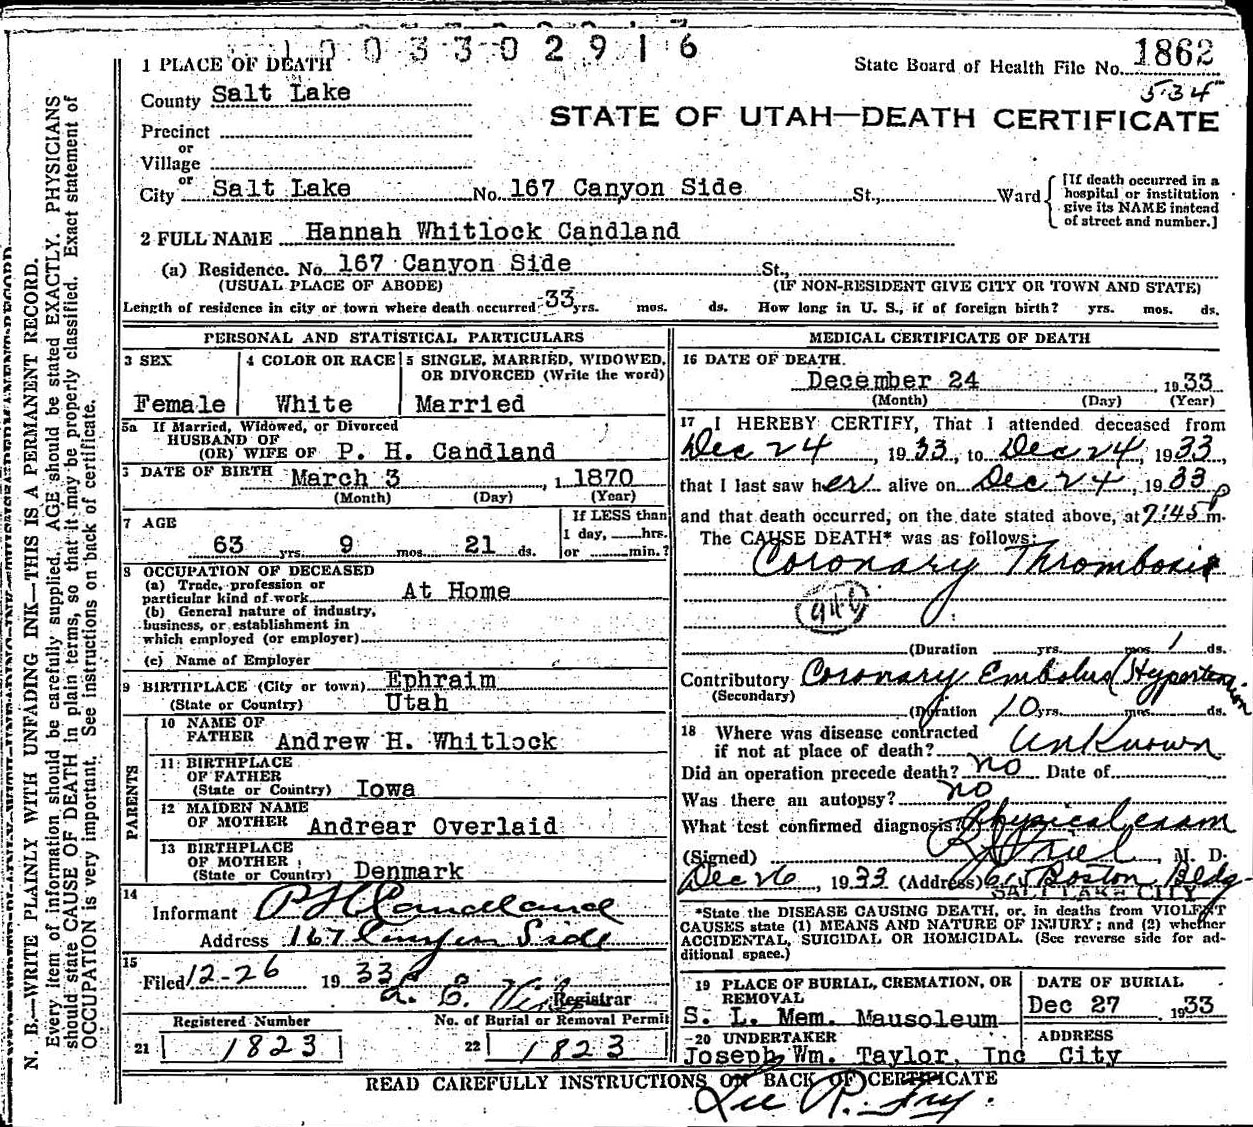 1 0 0 3 3 0 2 9 1 6
1 PLACE OF DEATH
State Board of Health File No. 1862
534
County Salt Lake
STATE OF UTAH—DEATH CERTIFICATE
Precinct
or
Village
or
City Salt Lake No. 167 Canyon Side St., Ward
[If death occurred in a
hospital or institution
give its NAME instead
of street and number.]
2 FULL NAME Hannah Whitlock Candland
(a) Residence. No. 167 Canyon Side St.,
(USUAL PLACE OF ABODE) (IF NON-RESIDENT GIVE CITY OR TOWN AND STATE)
Length of residence in city or town where death occurred 33 yrs. mos. ds. How long in U. S., if of foreign birth? yrs. mos. ds.
PERSONAL AND STATISTICAL PARTICULARS
3 SEX
Female
4 COLOR OR RACE
White
5 SINGLE, MARRIED, WIDOWED,
OR DIVORCED (Write the word)
Married
5a If Married, Widowed, or Divorced
HUSBAND OF
(OR) WIFE OF P. H. Candland
DATE OF BIRTH March 3 , 1 1870
(Month) (Day) (Year)
7 AGE
63 yrs. 9 mos. 21 ds.
If LESS than
1 day, hrs.
or min.?
8 OCCUPATION OF DECEASED
(a) Trade, profession or
particular kind of work At Home
(b) General nature of industry,
business, or establishment in
which employed (or employer)
(c) Name of Employer
9 BIRTHPLACE (City or town) Ephraim
(State or Country) Utah
PARENTS
10 NAME OF
FATHER Andrew H. Whitlock
11 BIRTHPLACE
OF FATHER
(State or Country) Iowa
12 MAIDEN NAME
OF MOTHER Andrear Overlaid
13 BIRTHPLACE
OF MOTHER
(State or Country) Denmark
14
Informant P H Candland
Address 167 Canyon Side
15
Filed 12-26 19 33
Registrar
Registered Number
21 1823
No. of Burial or Removal Permit
22 1823
MEDICAL CERTIFICATE OF DEATH
16 DATE OF DEATH
December 24 19 33
(Month) (Day) (Year)
17 I HEREBY CERTIFY, That I attended deceased from
Dec 24, 19 33, to Dec 24, 19 33,
that I last saw her alive on Dec 24, 19 33
and that death occurred, on the date stated above, at 7:45 P m.
The CAUSE DEATH* was as follows:
Coronary Thrombosis
(Duration yrs. mos. 1 ds.
Contributory Coronary Embolus (Hypertension
(Secondary)
(Duration 10 yrs. mos. ds.
18 Where was disease contracted
if not at place of death? Unknown
Did an operation precede death? no Date of
Was there an autopsy? no
What test confirmed diagnosis? Physical exam
(Signed) , M. D.
Dec 26, 19 33 (Address) 615 Boston Bldg-
SALT LAKE CITY
*State the DISEASE CAUSING DEATH, or, in deaths from VIOLENT
CAUSES state (1) MEANS AND NATURE OF INJURY; and (2) whether
ACCIDENTAL, SUICIDAL OR HOMICIDAL. (See reverse side for ad-
ditional space.)
19 PLACE OF BURIAL, CREMATION, OR
REMOVAL
S. L. Mem. Mausoleum
DATE OF BURIAL
Dec 27 , 19 33
20 UNDERTAKER
Joseph Wm. Taylor, Inc
ADDRESS
City
READ CAREFULLY INSTRUCTIONS ON BACK OF CERTIFICATE
Lee R. Fry.
N. B.—WRITE PLAINLY WITH UNFADING INK—THIS IS A PERMANENT RECORD.
Every item of information should be carefully supplied. AGE should be stated EXACTLY. PHYSICIANS
should state CAUSE OF DEATH in plain terms, so that it may be properly classified. Exact statement of
OCCUPATION is very important. See instructions on back of certificate.